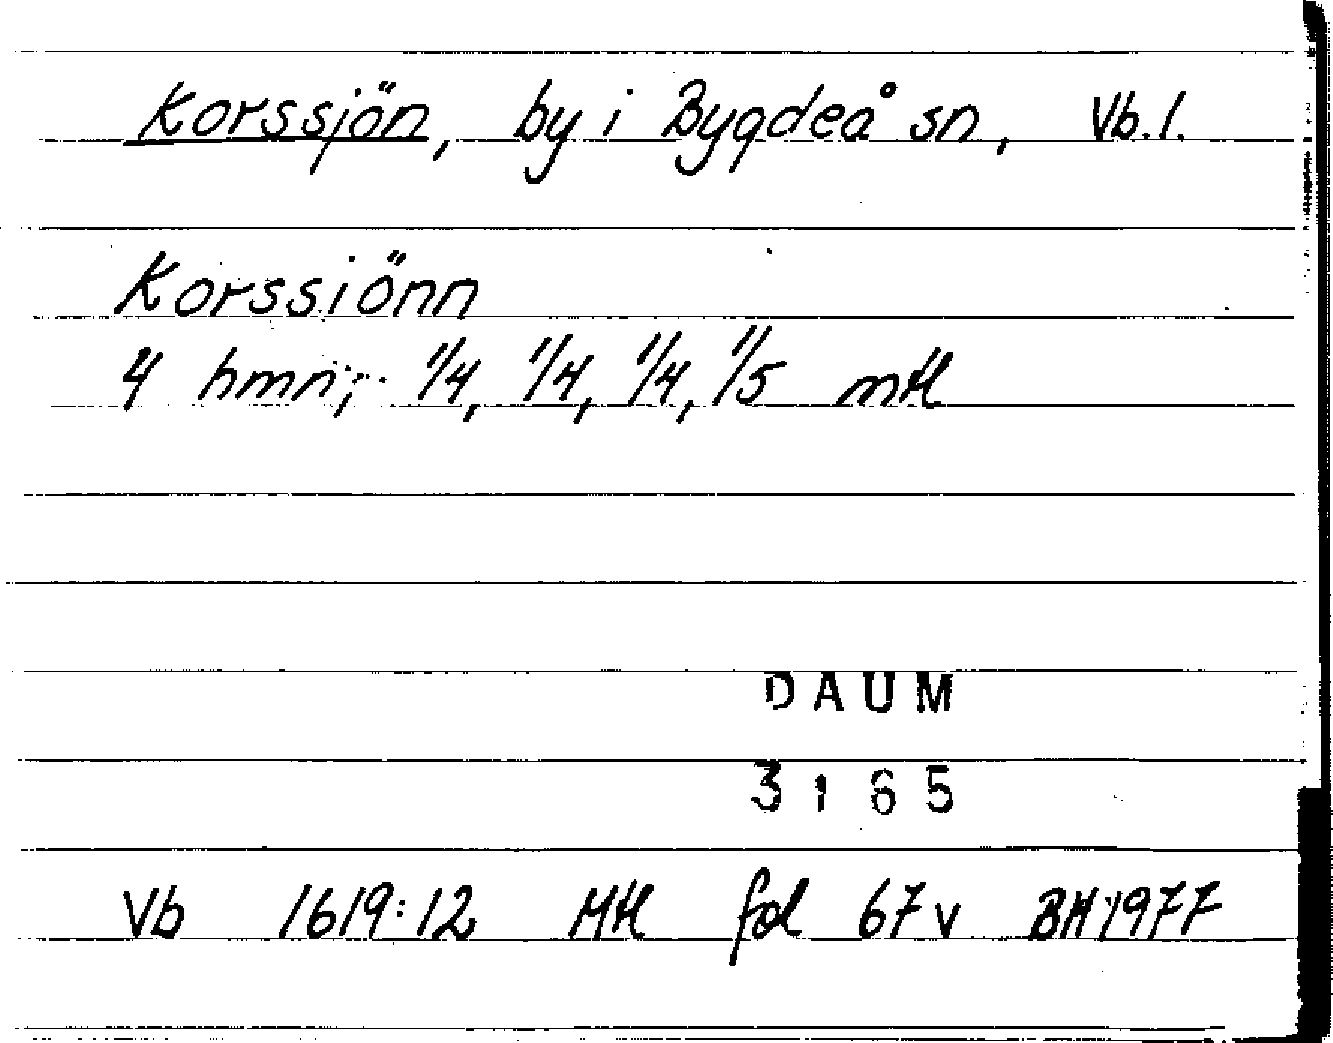 Korssjön, by i Bygdeå sn, Vb. l.
Korssiönn
4 hmn; 1/4, 1/4, 1/4, 1/5 mtl
DAUM
3165
Vb 1619:12 Mtl fol 67v BM 1977